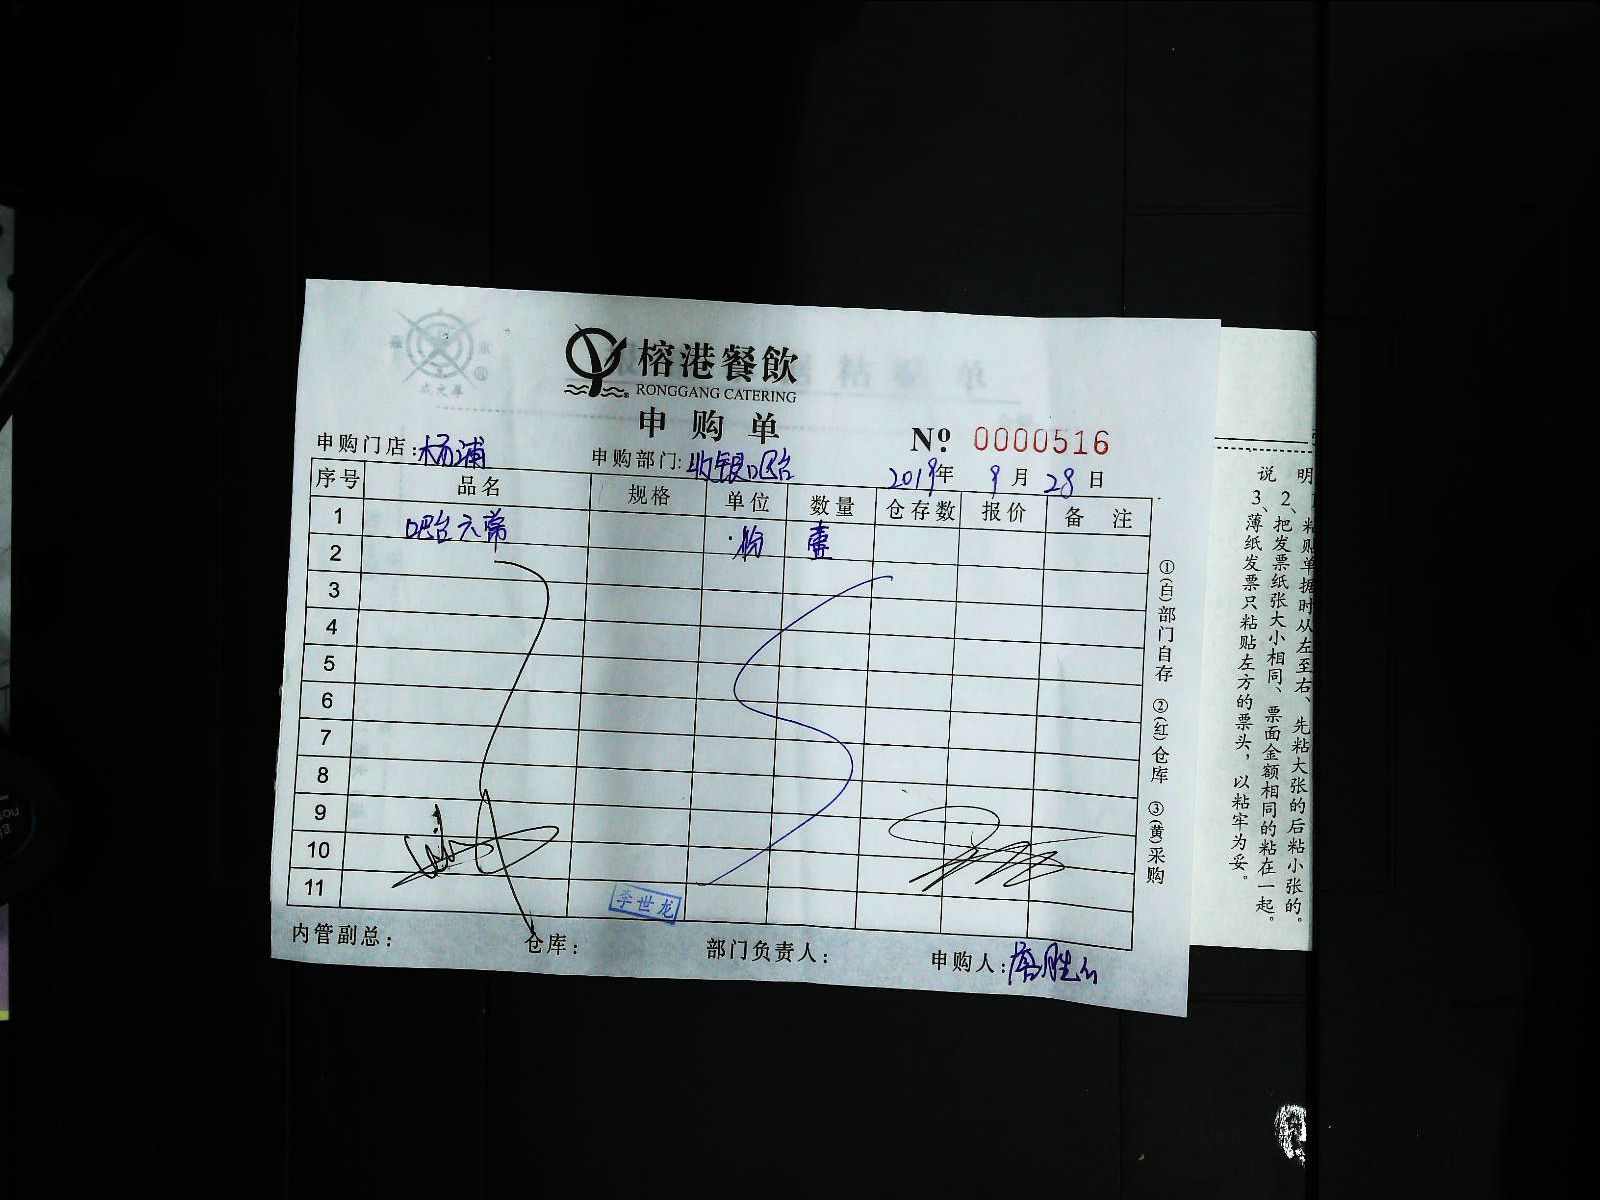 榕港餐飲
RONGGANG CATERING
申购单
№ 0000516
申购门店:杨浦 申购部门:收银吧台 2019年 9月 28日
序号 品名 规格 单位 数量 仓存数 报价 备注
1 吧台六常 份 壹
2
3
4
5
6
7
8
9
10
11
李世龙
内管副总: 仓库: 部门负责人: 申购人:
①(白)部门自存 ②(红)仓库 ③(黄)采购
说明
粘贴单据时从左至右、先粘大张的后粘小张的。
2、把发票纸张大小相同、票面金额相同的粘在一起。
3、薄纸发票只粘贴左方的票头,以粘牢为妥。